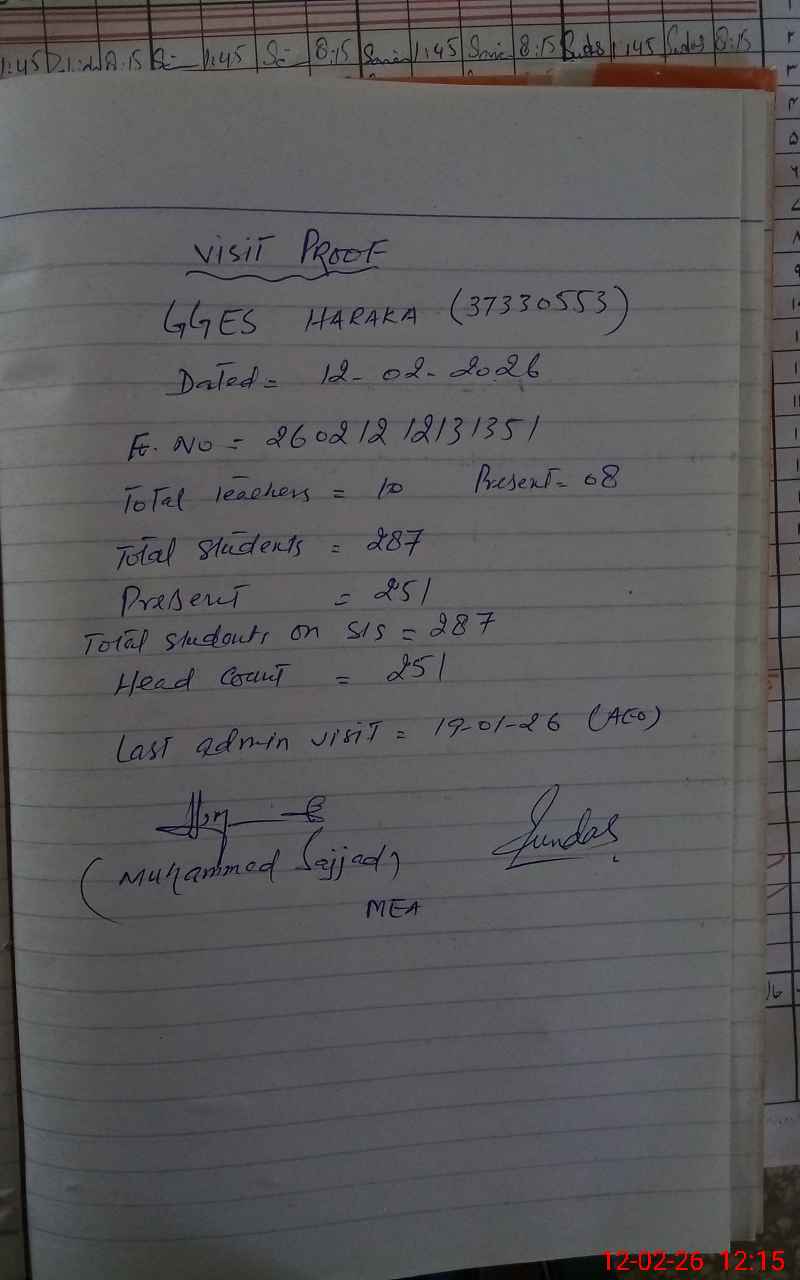 1:45 8:15 1:45 8:15 1:45 8:15 1:45 Sundas 8:15
VISIT PROOF
GGES HARAKA (37330553)
Dated = 12-02-2026
F. No = 260212 12131351
Total Teachers = 10 Present = 08
Total Students = 287
Present = 251
Total students on SIS = 287
Head Count = 251
Last admin visit = 19-01-26 (AEO)
Sundas
(Muhammad Sajjad)
MEA
12-02-26 12:15